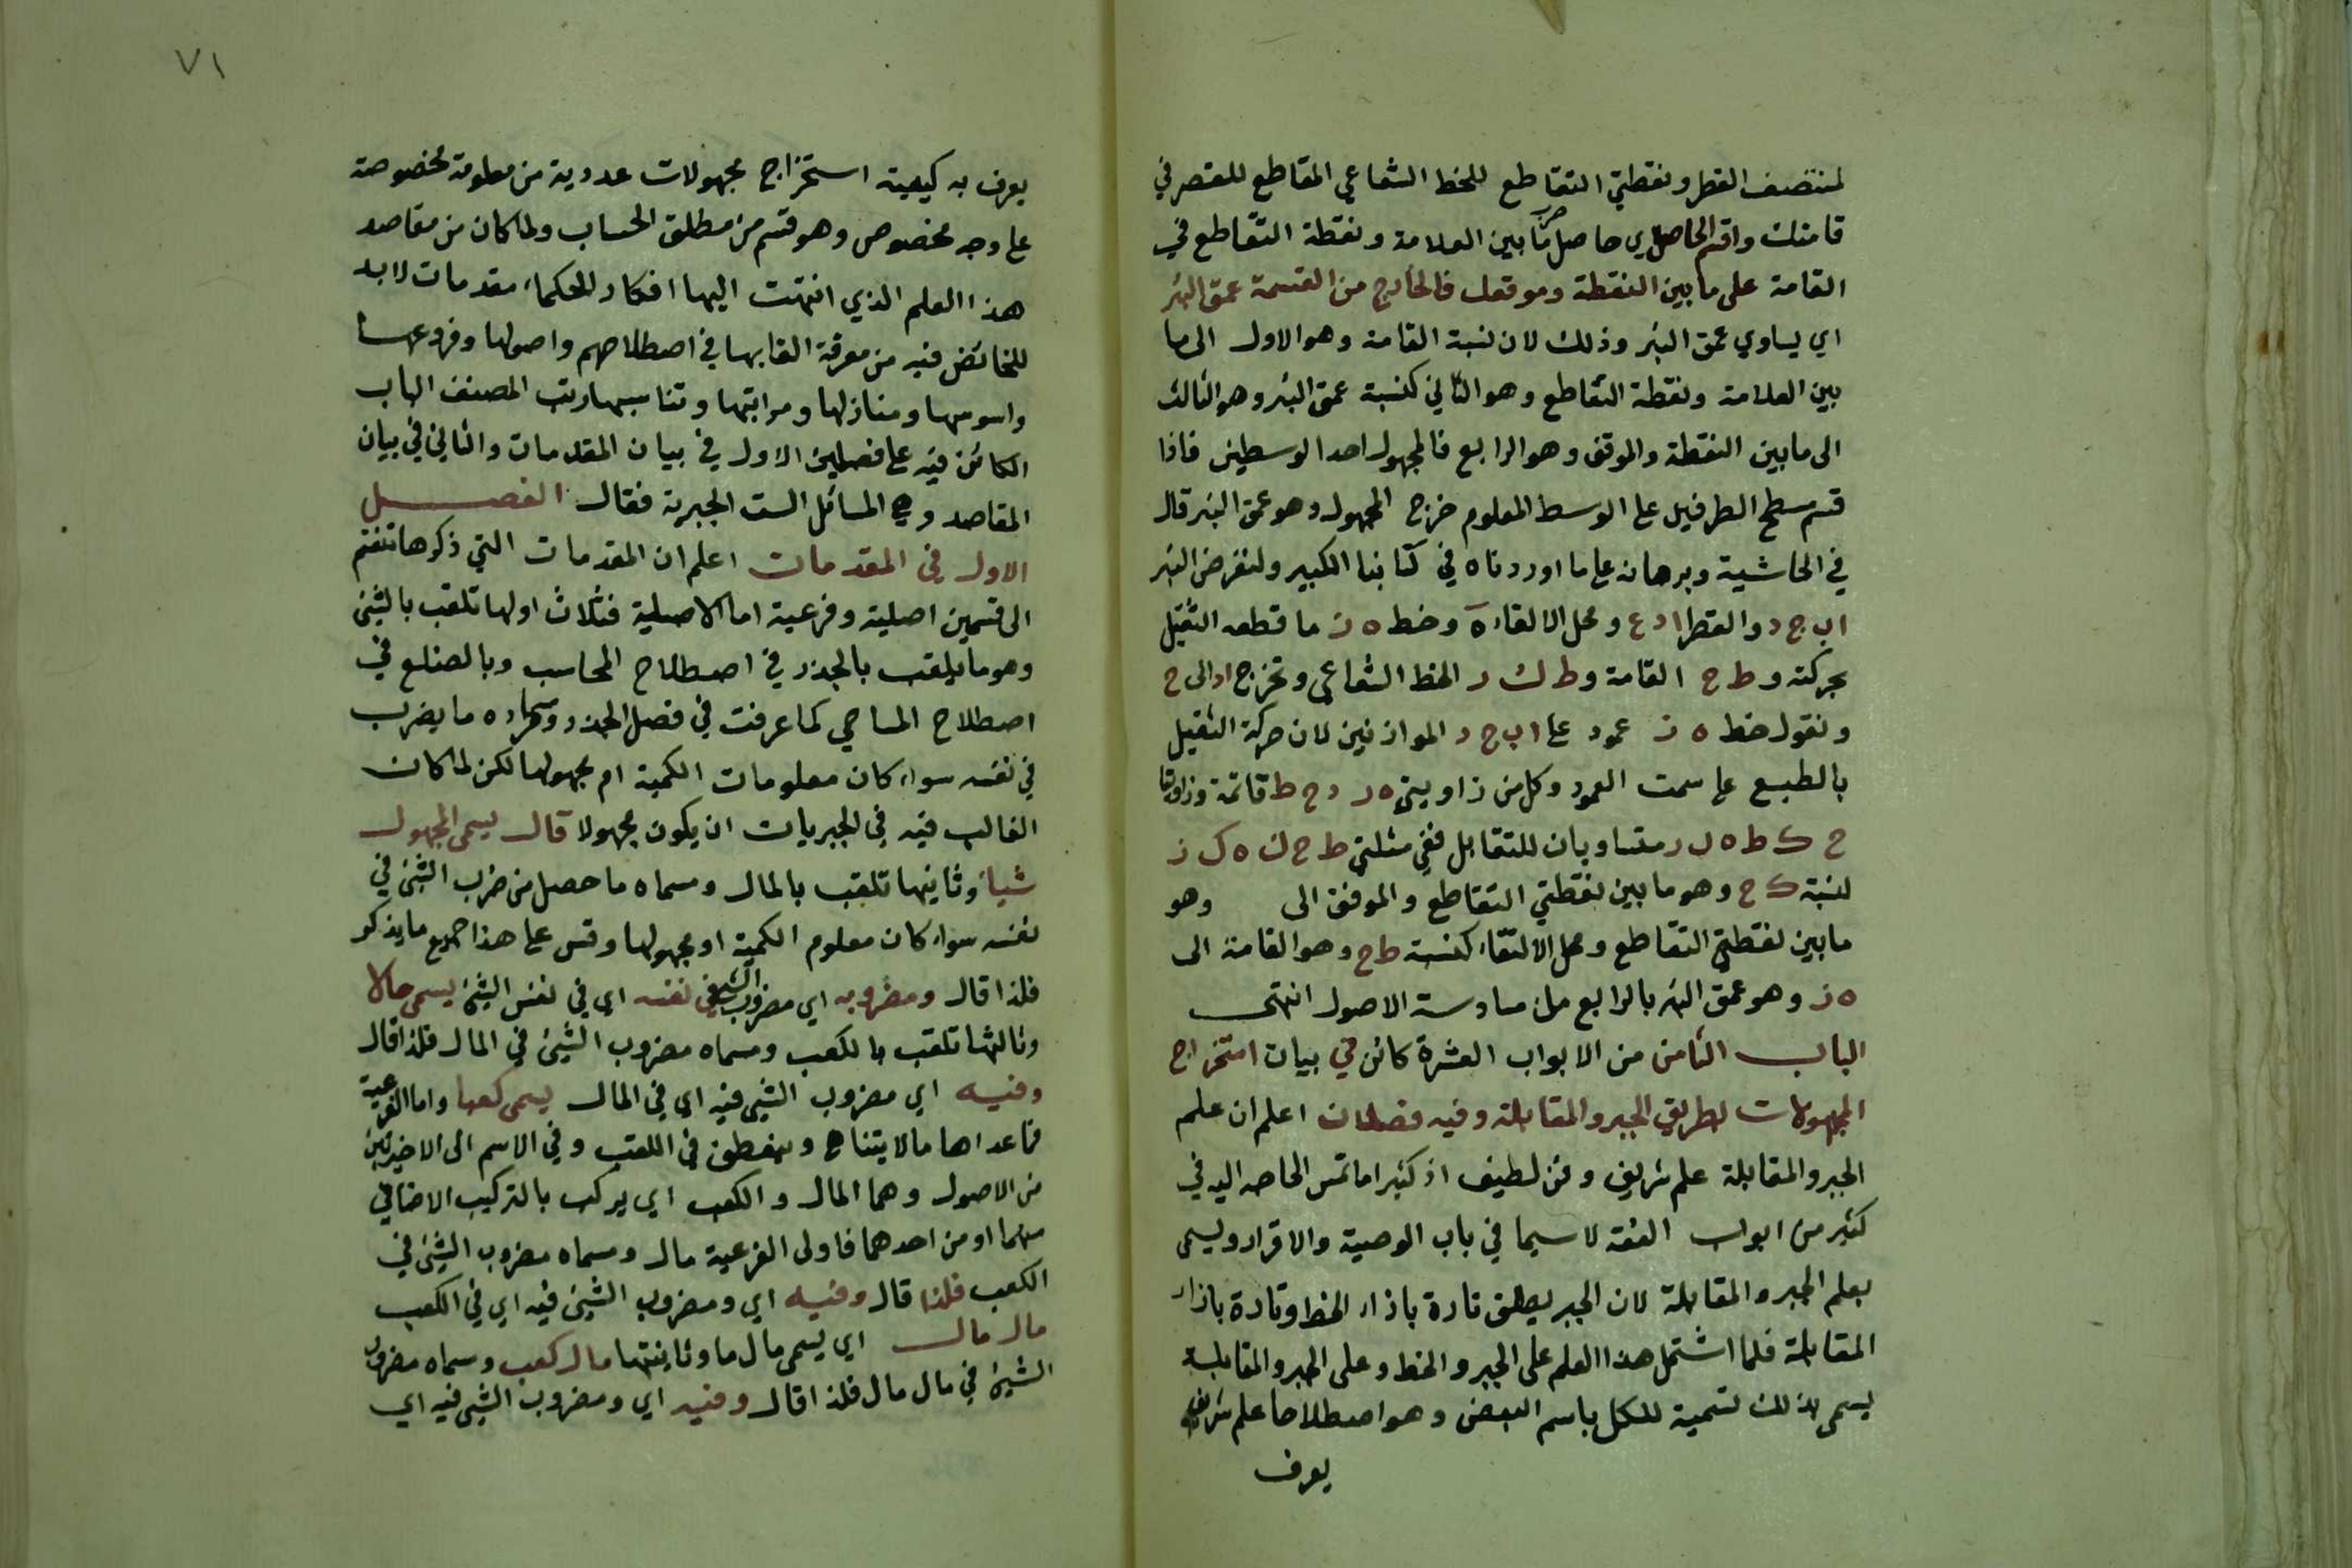 لمنتصف القطر ونقطتي التقاطع للخط الشعاعي المقاطع للقصر في
قامتك واقسم الحاصل اي حاصل ضرب ما بين العلامة ونقطة التقاطع في
القامة على ما بين النقطة وموقفك فالخارج من القسمة عمق البئر
اي يساوي عمق البئر وذلك لان نسبة القامة وهو الاول الى ما
بين العلامة ونقطة التقاطع وهو الثاني كنسبة عمق البئر وهو الثالث
الى ما بين النقطة والموقف وهو الرابع فالمجهول احد الوسطين فاذا
قسم سطح الطرفين على الوسط المعلوم خرج المجهول وهو عمق البئر قال
في الحاشية وبرهانه على ما اوردناه في كتابنا الكبير ولنفرض البئر
اب ج د والقطر ا د ع ومحل الالقاء ه وخط ه ز ما قطعه الثقيل
بحركته و ط ح القامة و ط ك ر الخط الشعاعي ونخرج اد الى ح
ونقول خط ه ز عمود على ا ب ج د الموازنين لان حركة الثقيل
بالطبع على سمت العمود وكل من زاويتي ه ر د ح ط قائمة وزاويتا
ح ك ط ه ك ر متساويان للتقابل ففي مثلثي ط ح ك ه ك ز
لنسبة ك ح وهو ما بين نقطتي التقاطع والموقف الى وهو
ما بين نقطتي التقاطع ومحل الالتقاء كنسبة ط ح وهو القامة الى
ه ز وهو عمق البئر بالرابع من سادسة الاصول انتهى
الباب الثامن من الابواب العشرة كائن في بيان استخراج
المجهولات بطريق الجبر والمقابلة وفيه فصلان اعلم ان علم
الجبر والمقابلة علم شريف وفن لطيف اذ كثيرا ما تمس الحاجه اليه في
كثير من ابواب الفقه لا سيما في باب الوصية والاقرار ويسمى
بعلم الجبر والمقابلة لان الجبر يطلق تارة بازاء الخط وتارة بازاء
المقابلة فلما اشتمل هذا العلم على الجبر والخط وعلى الجبر والمقابلة
يسمى بذلك تسمية للكل باسم البعض وهو اصطلاحا علم شريف
يعرف
٧١
يعرف به كيفية استخراج مجهولات عددية من معلومة مخصوصة
على وجه مخصوص وهو قسم من مطلق الحساب ولما كان من مقاصد
هذا العلم الذي انتهت اليها افكار الحكماء مقدمات لا بد
للخائض فيه من معرفة القابها في اصطلاحهم واصولها وفروعها
واسوسها ومنازلها ومراتبها وتناسبها رتب المصنف الباب
الكائن فيه على فصلين الاول في بيان المقدمات والثاني في بيان
المقاصد وهي المسائل الست الجبرية فقال الفصل
الاول في المقدمات اعلم ان المقدمات التي ذكرها تنقسم
الى قسمين اصلية وفرعية اما الاصلية فثلاث اولها تلقب بالشيئ
وهو ما يلقب بالجذر في اصطلاح المحاسب وبالضلع في
اصطلاح المساحي كما عرفت في فصل الجذر ومسماه ما يضرب
في نفسه سواء كان معلومات الكمية ام مجهولها لكن لما كان
الغالب فيه في الجبريات ان يكون مجهولا قال يسمى المجهول
شيا وثانيها تلقب بالمال ومسماه ما حصل من ضرب الشيئ في
نفسه سواء كان معلوم الكمية او مجهولها وقس على هذا جميع ما يذكر
فلذا قال ومضروبه اي مضروب الشيئ في نفسه اي في نفس الشيئ يسمى مالا
وثالثها تلقب بالكعب ومسماه مضروب الشيئ في المال فلذا قال
وفيه اي مضروب الشيئ فيه اي في المال يسمى كعبا واما الفرعية
فما عداها مالا يتناهى في اللقب وفي الاسم الى الاخيرتين
من الاصول وهما المال والكعب اي يركب بالتركيب الاضافي
منهما او من احدهما فاولى الفرعية مال ومسماه مضروب الشيئ في
الكعب فلذا قال وفيه اي ومضروب الشيئ فيه اي في الكعب
مال مال اي يسمى مال ما وثانيتها مال كعب ومسماه مضروب
الشيئ في مال مال فلذا قال وفيه اي ومضروب الشيئ فيه اي